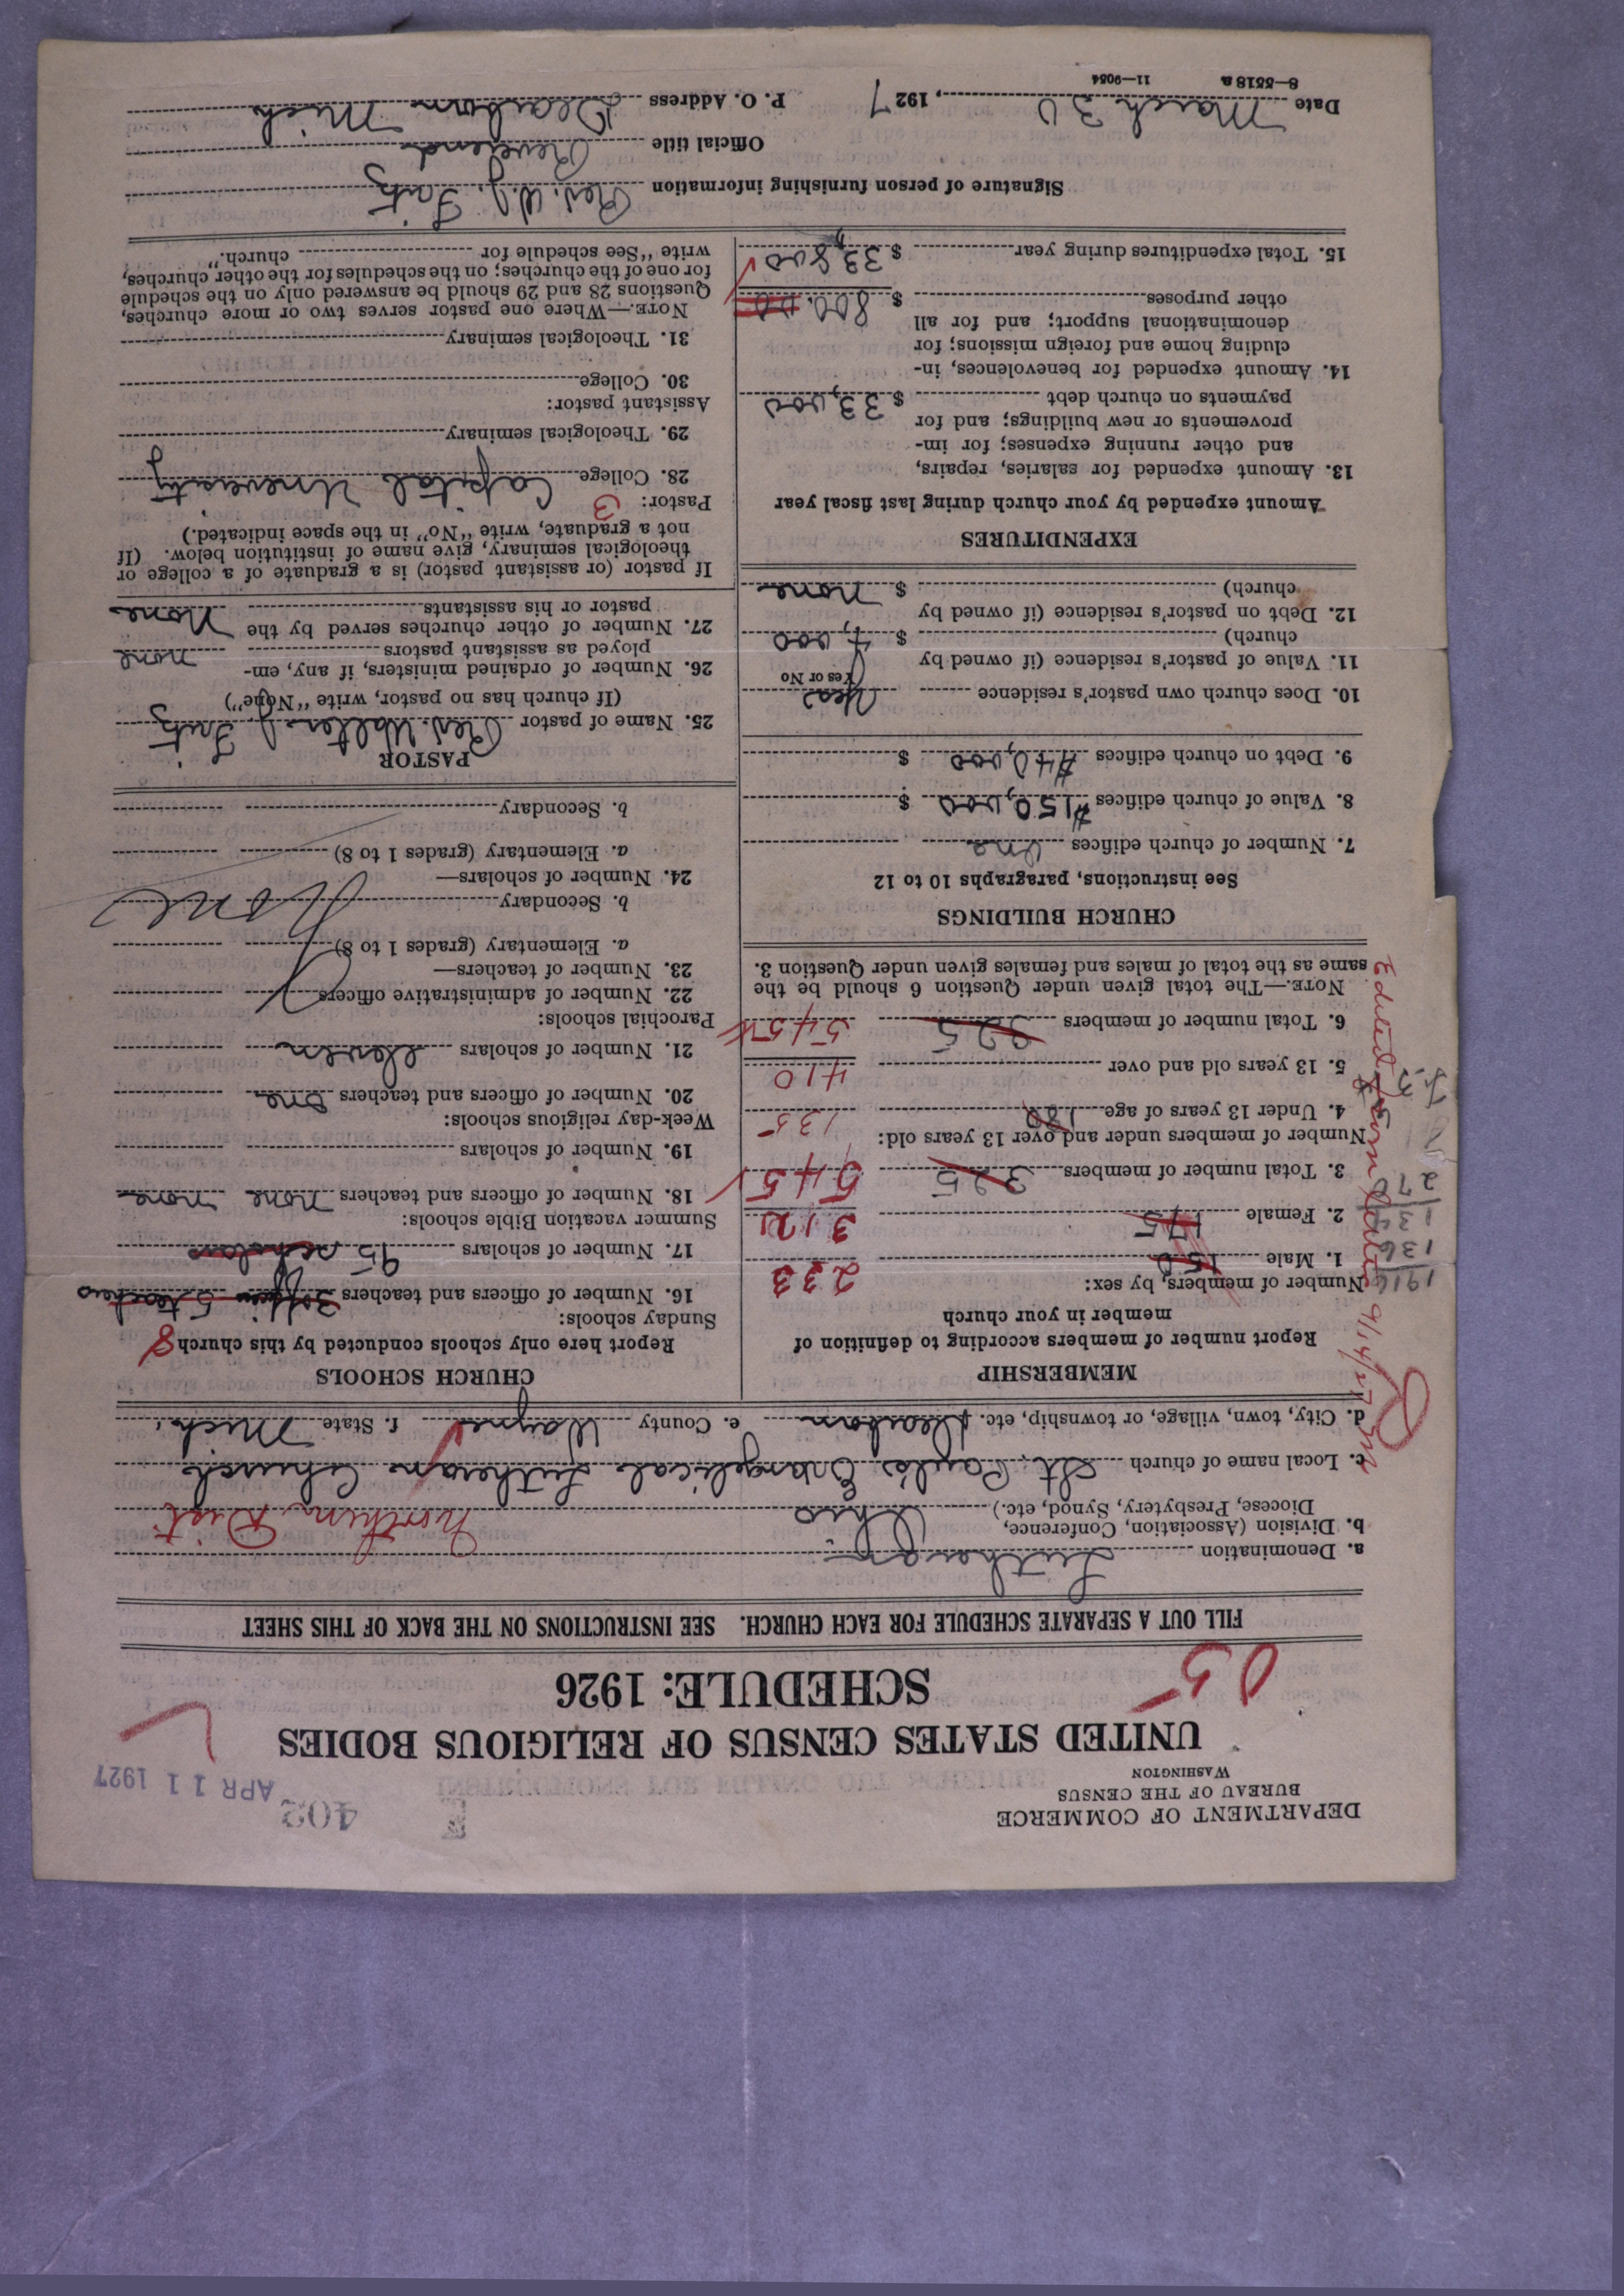 DEPARTMENT OF COMMERCE
BUREAU OF THE CENSUS
WASHINGTON
402
APR 11 1927
UNITED STATES CENSUS OF RELIGIOUS BODIES
SCHEDULE: 1926
05
FILL OUT A SEPARATE SCHEDULE FOR EACH CHURCH. SEE INSTRUCTIONS ON THE BACK OF THIS SHEET
a. Denomination Lutheran
b. Division (Association, Conference,
Diocese, Presbytery, Synod, etc.) Ohio Northern Dist
c. Local name of church St. Paul's Evangelical Lutheran Church
d. City, town, village, or township, etc. Dearborn e. County Wayne f. State Mich.
MEMBERSHIP
Report number of members according to definition of
member in your church
Number of members, by sex:
1. Male 150 233
2. Female 175 312
3. Total number of members 325 545
Number of members under and over 13 years old:
4. Under 13 years of age 135
5. 13 years old and over 410
6. Total number of members 325 545
NOTE.—The total given under Question 6 should be the
same as the total of males and females given under Question 3.
1916
136
134
270
CHURCH BUILDINGS
See instructions, paragraphs 10 to 12
7. Number of church edifices One
8. Value of church edifices #150,000 $
9. Debt on church edifices #40,000 $
10. Does church own pastor's residence Yes
Yes or No
11. Value of pastor's residence (if owned by
church) $ 7,000
12. Debt on pastor's residence (if owned by
church) $ none
EXPENDITURES
Amount expended by your church during last fiscal year
13. Amount expended for salaries, repairs,
and other running expenses; for im-
provements or new buildings; and for
payments on church debt $ 33,000
14. Amount expended for benevolences, in-
cluding home and foreign missions; for
denominational support; and for all
other purposes $ 800.00
15. Total expenditures during year $ 33,800
CHURCH SCHOOLS
Report here only schools conducted by this church
Sunday schools: 8
16. Number of officers and teachers 3 officers 5 teachers
17. Number of scholars 95 scholars
Summer vacation Bible schools:
18. Number of officers and teachers none none
19. Number of scholars
Week-day religious schools:
20. Number of officers and teachers one
21. Number of scholars eleven
Parochial schools:
22. Number of administrative officers
23. Number of teachers—
a. Elementary (grades 1 to 8)
b. Secondary None
24. Number of scholars—
a. Elementary (grades 1 to 8)
b. Secondary
PASTOR
25. Name of pastor Rev. Walter J.
(If church has no pastor, write "None")
26. Number of ordained ministers, if any, em-
ployed as assistant pastors none
27. Number of other churches served by the
pastor or his assistants None
If pastor (or assistant pastor) is a graduate of a college or
theological seminary, give name of institution below. (If
not a graduate, write "No" in the space indicated.)
Pastor: 3
28. College Capital University
29. Theological seminary
Assistant pastor:
30. College
31. Theological seminary
NOTE.—Where one pastor serves two or more churches,
Questions 28 and 29 should be answered only on the schedule
for one of the churches; on the schedules for the other churches,
write "See schedule for church."
Signature of person furnishing information Rev. W. J.
Official title Reverend
Date March 30, 1927 P. O. Address Dearborn Mich
8—5518 a 11—9054